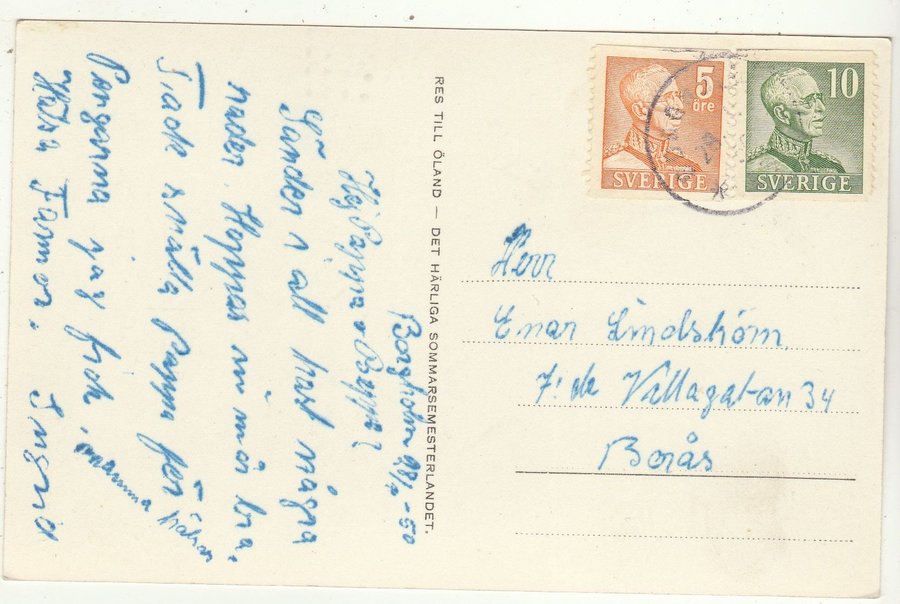 Borgholm 28/7 -50
Hej Pappa o Beppa!
Sänder i all hast några
rader. Hoppas ni mår bra.
Tack snälla pappa för
Pengarna jag fick, mamma hälsar
Hälsa Farmor. Ingrid
RES TILL ÖLAND — DET HÄRLIGA SOMMARSEMESTERLANDET.
5
öre
SVERIGE
10
SVERIGE
Herr
Einar Lindström
7:de Villagatan 34
Borås